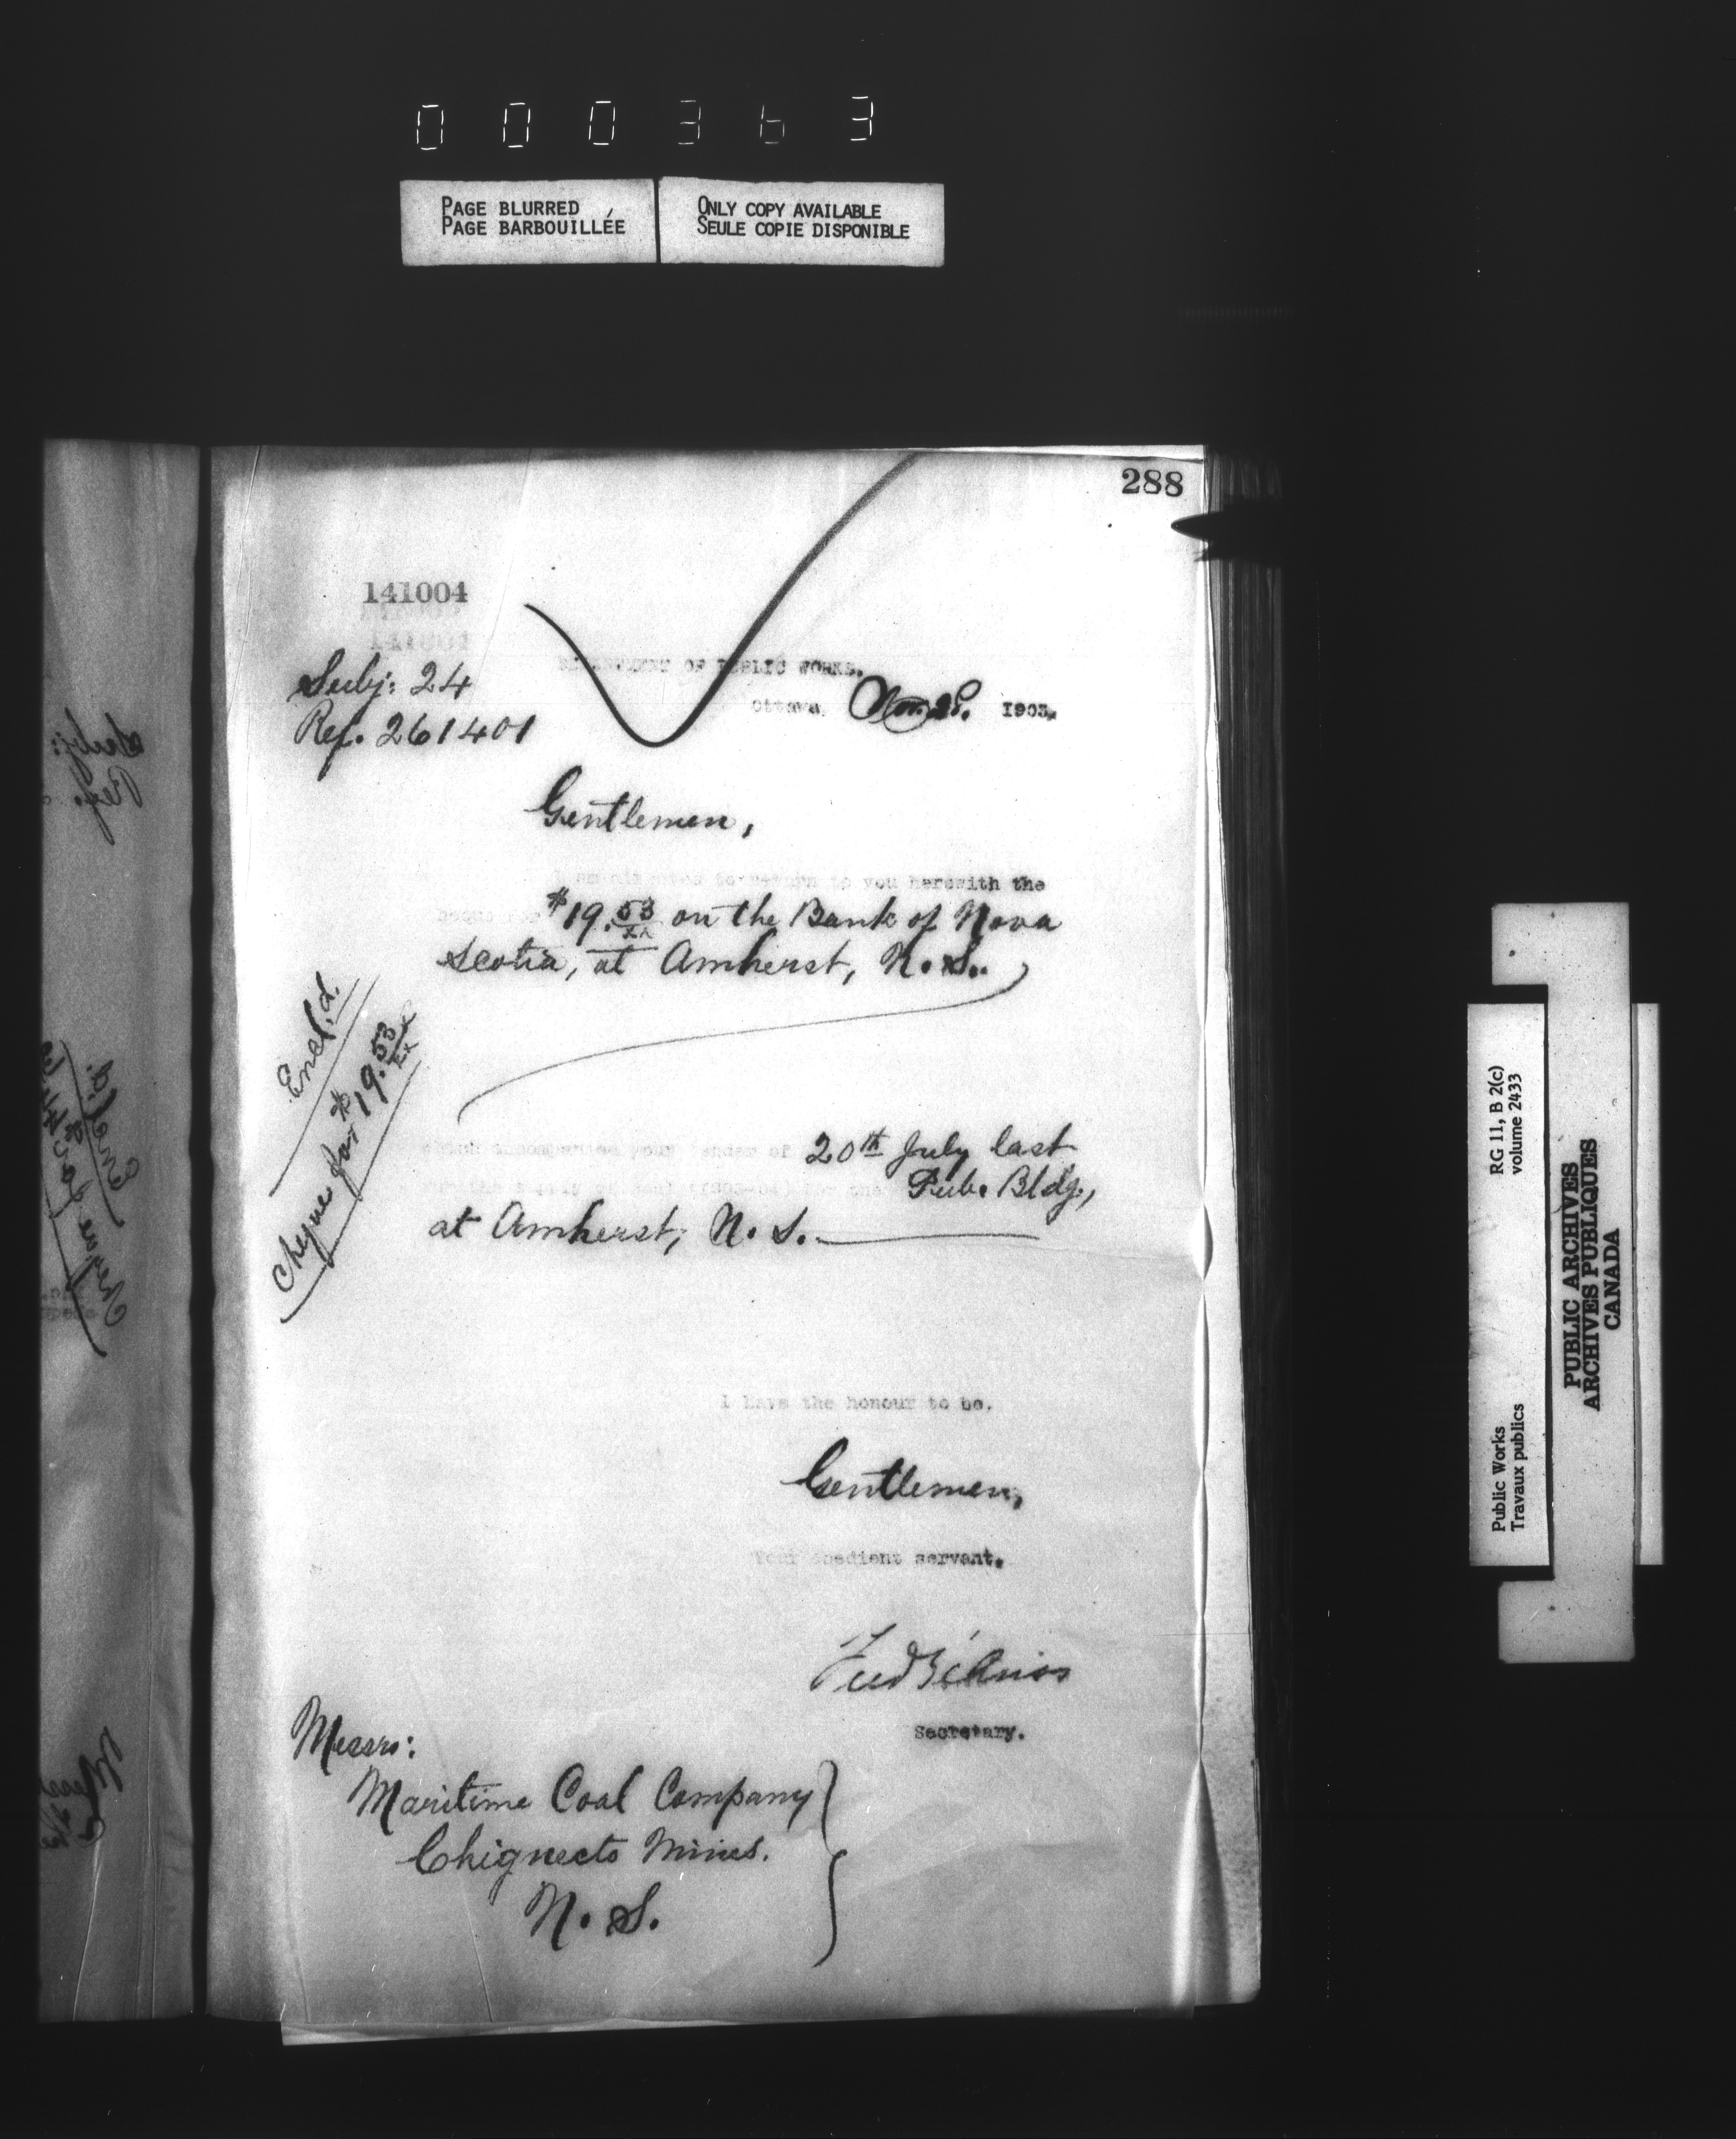 000363
PAGE BLURRED
PAGE BARBOUILLÉE
ONLY COPY AVAILABLE
SEULE COPIE DISPONIBLE
288
141004
Subj: 24
Ref. 261401
DEPARTMENT OF PUBLIC WORKS.
Ottawa, Nov. 25. 1903.
Gentlemen,
to return to you herewith the
$19.53/xx on the Bank of Nova
Scotia, at Amherst, N.S.
Encl.d.
Cheque for $19.53/xx
which accompanied your tender of 20th July last
for the Pub. Bldg.,
at Amherst, N.S.
I have the honour to be,
Gentlemen,
Your obedient servant,
Secretary.
Messrs:
Maritime Coal Company
Chignecto Mines.
N.S.
RG 11, B 2(c)
volume 2433
Public Works
Travaux publics
PUBLIC ARCHIVES
ARCHIVES PUBLIQUES
CANADA